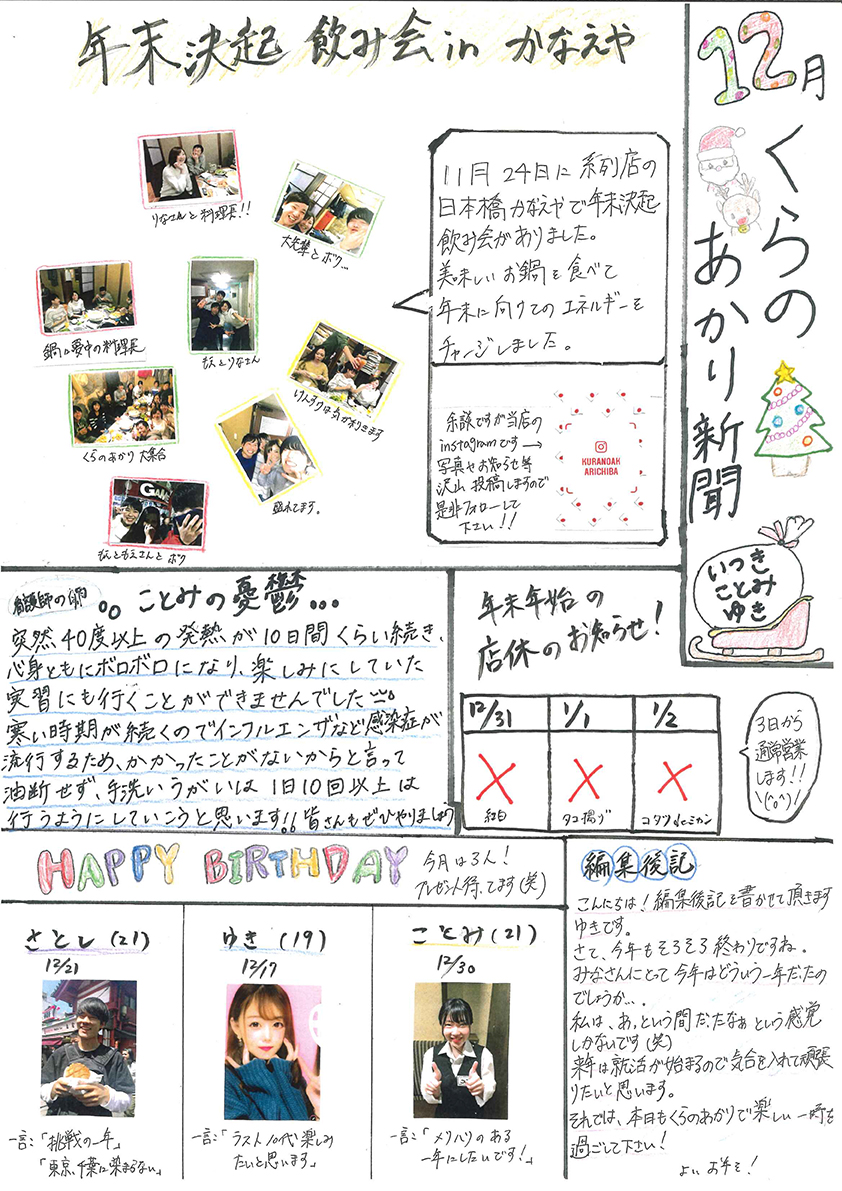 12月
くらの
あかり新聞
いつき
ことみ
ゆき
年末決起 飲み会 in かなえや
11月24日に系列店の
日本橋かなえやで年末決起
飲み会がありました。
美味しいお鍋を食べて
年末に向けてのエネルギーを
チャージしました。
りなさんと料理長!!
大先輩とボク…
鍋に夢中の料理長
もえとりなさん
けんすけは気が利きます
くらのあかり 大集合
盛れてます。
もえともえさんと ボク
余談ですが当店の
instagramです→
写真やお知らせ等
沢山 投稿しますので
是非フォローして
下さい!!
KURANOAK
ARICHIBA
看護師の卵
ことみの憂鬱…
突然40度以上の発熱が10日間くらい続き、
心身ともにボロボロになり、楽しみにしていた
実習にも行くことができませんでした
寒い時期が続くのでインフルエンザなど感染症が
流行するため、かかったことがないからと言って
油断せず、手洗いうがいは1日10回以上は
行うようにしていこうと思います!! 皆さんもぜひやりましょう
年末年始の
店休のお知らせ!
12/31 1/1 1/2
紅白 タコ揚げ コタツdeミカン
3日から
通常営業
します!!
\(^o^)/
HAPPY BIRTHDAY
今月は3人!
プレゼント待ってます(笑)
さとし(21)
12/21
一言:「挑戦の一年」
「東京、千葉に染まらない」
ゆき(19)
12/17
一言:「ラスト10代楽しみ
たいと思います」
ことみ(21)
12/30
一言:「メリハリのある
一年にしたいです!」
編集後記
こんにちは!編集後記を書かせて頂きます
ゆきです。
さて、今年もそろそろ終わりですね。
みなさんにとって今年はどういう一年だったの
でしょうか…。
私は、あっという間だったなぁという感覚
しかないです(笑)
来年は就活が始まるので気合を入れて頑張
りたいと思います。
それでは、本日もくらのあかりで楽しい一時を
過ごして下さい!
よいお年を!